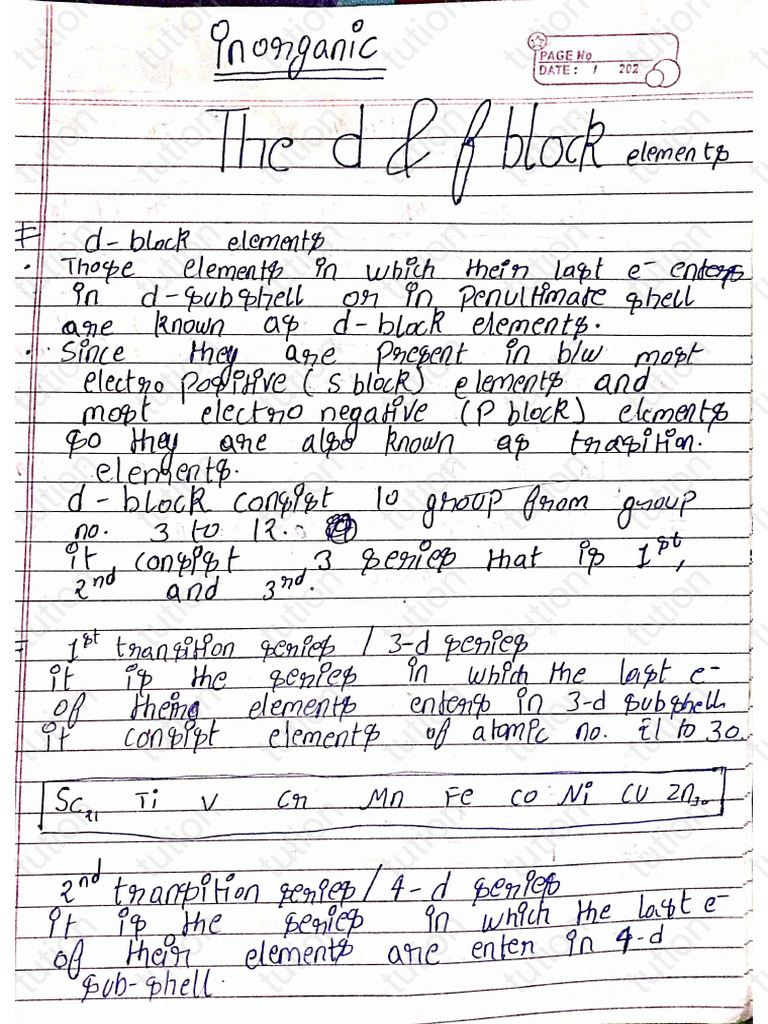 inorganic
PAGE No
DATE: / 202
The d & f block elements
d-block elements
· Those elements in which their last e- enters
in d-subshell or in penultimate shell
are known as d-block elements.
· Since they are present in b/w most
electro positive (s block) elements and
most electro negative (P block) elements
so they are also known as transition.
elements.
d-block consist 10 group from group
no. 3 to 12.
it consist 3 series that is 1st,
2nd and 3rd.
1st transition series / 3-d series
it is the series in which the last e-
of their elements enters in 3-d subshell
it consist elements of atomic no. 21 to 30.
Sc21 Ti V Cr Mn Fe Co Ni Cu Zn30
2nd transition series / 4-d series
it is the series in which the last e-
of their elements are enter in 4-d
sub-shell.
tution